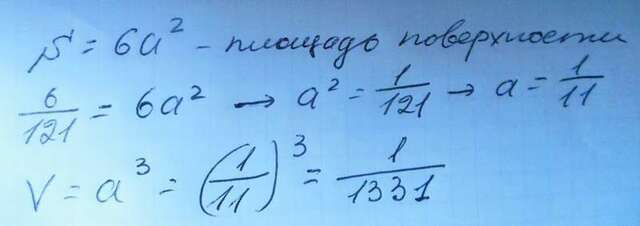 S = 6a² - площадь поверхности
6/121 = 6a² → a² = 1/121 → a = 1/11
V = a³ = (1/11)³ = 1/1331